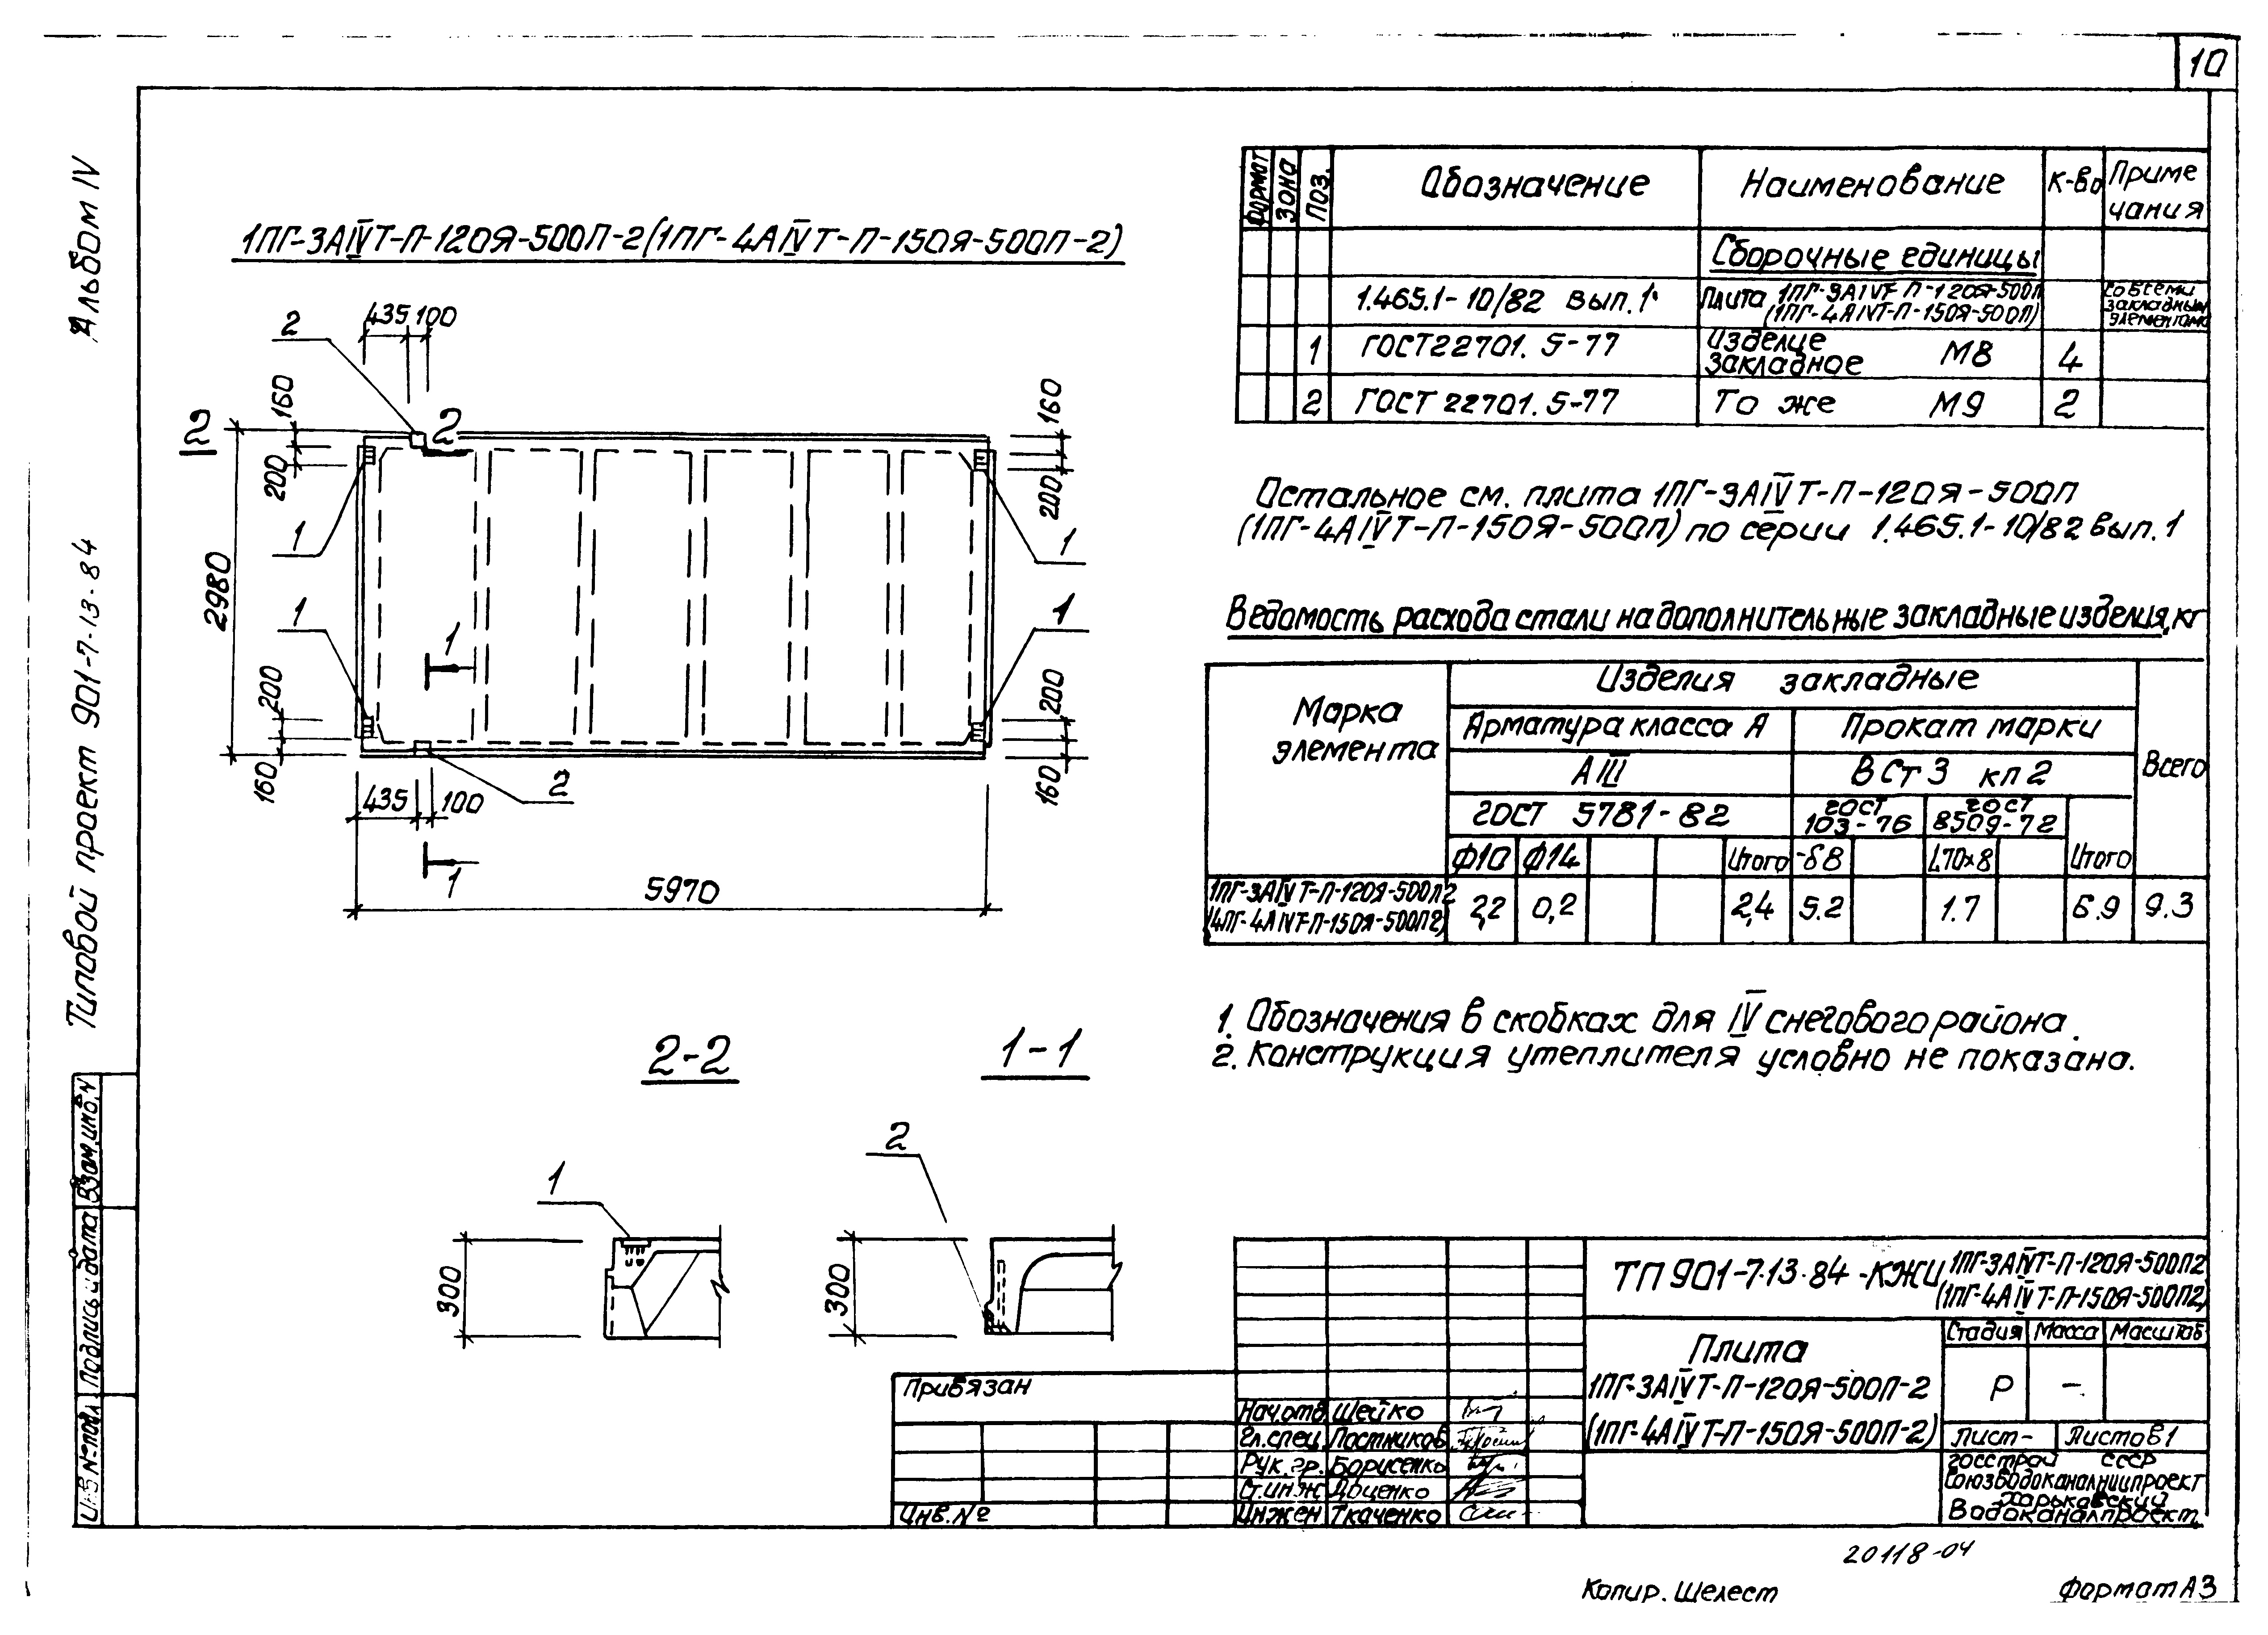 10
Альбом IV
Типовой проект 901-7-13-84
Взам.инв.N
Подпись и дата
Инв N° подл.
1ПГ-3АIVТ-П-120Я-500П-2(1ПГ-4АIVТ-П-150Я-500П-2)
435 100
2
160
2
2
160
200
200
1
1
2980
1
1
1
200
200
160
160
435
100
2
1
5970
2-2
1-1
1
2
300
300
Формат
Зона
Поз.
Обозначение
Наименование
К-во
Приме
чания
Сборочные единицы
1.465.1-10/82 вып.1
Плита 1ПГ-3АIVТ-П-120Я-500П
(1ПГ-4АIVТ-П-150Я-500П)
Со всеми
закладными
элементами
1 ГОСТ 22701.5-77 Изделие
закладное М8 4
2 ГОСТ 22701.5-77 То же М9 2
Остальное см. плита 1ПГ-3АIVТ-П-120Я-500П
(1ПГ-4АIVТ-П-150Я-500П) по серии 1.465.1-10/82 вып.1
Ведомость расхода стали на дополнительные закладные изделия, кг
Марка
элемента
Изделия закладные
Всего
Арматура класса А
Прокат марки
АIII
ВСт3 кп2
ГОСТ 5781-82
ГОСТ
103-76
ГОСТ
8509-72
Ф10 Ф14 Итого -δ8 L70×8 Итого
1ПГ-3АIVТ-П-120Я-500П2
(4ПГ-4АIVТ-П-150Я-500П2)
2,2 0,2 2,4 5.2 1.7 6.9 9.3
1. Обозначения в скобках для IV снегового района.
2. Конструкция утеплителя условно не показана.
ТП 901-7-13-84 -КЖИ
1ПГ-3АIVТ-П-120Я-500П2
(1ПГ-4АIVТ-П-150Я-500П2)
Плита
1ПГ-3АIVТ-П-120Я-500П-2
(1ПГ-4АIVТ-П-150Я-500П-2)
Стадия Масса Масштаб
Р -
Лист- Листов 1
Госстрой СССР
Союзводоканалниипроект
Харьковский
Водоканалпроект
Привязан
Инв.№
Нач.отд. Шейко
Гл.спец. Постников
Рук.гр. Борисенко
Ст.инж Доценко
Инжен Ткаченко
20118-04
Копир. Шелест
Формат А3